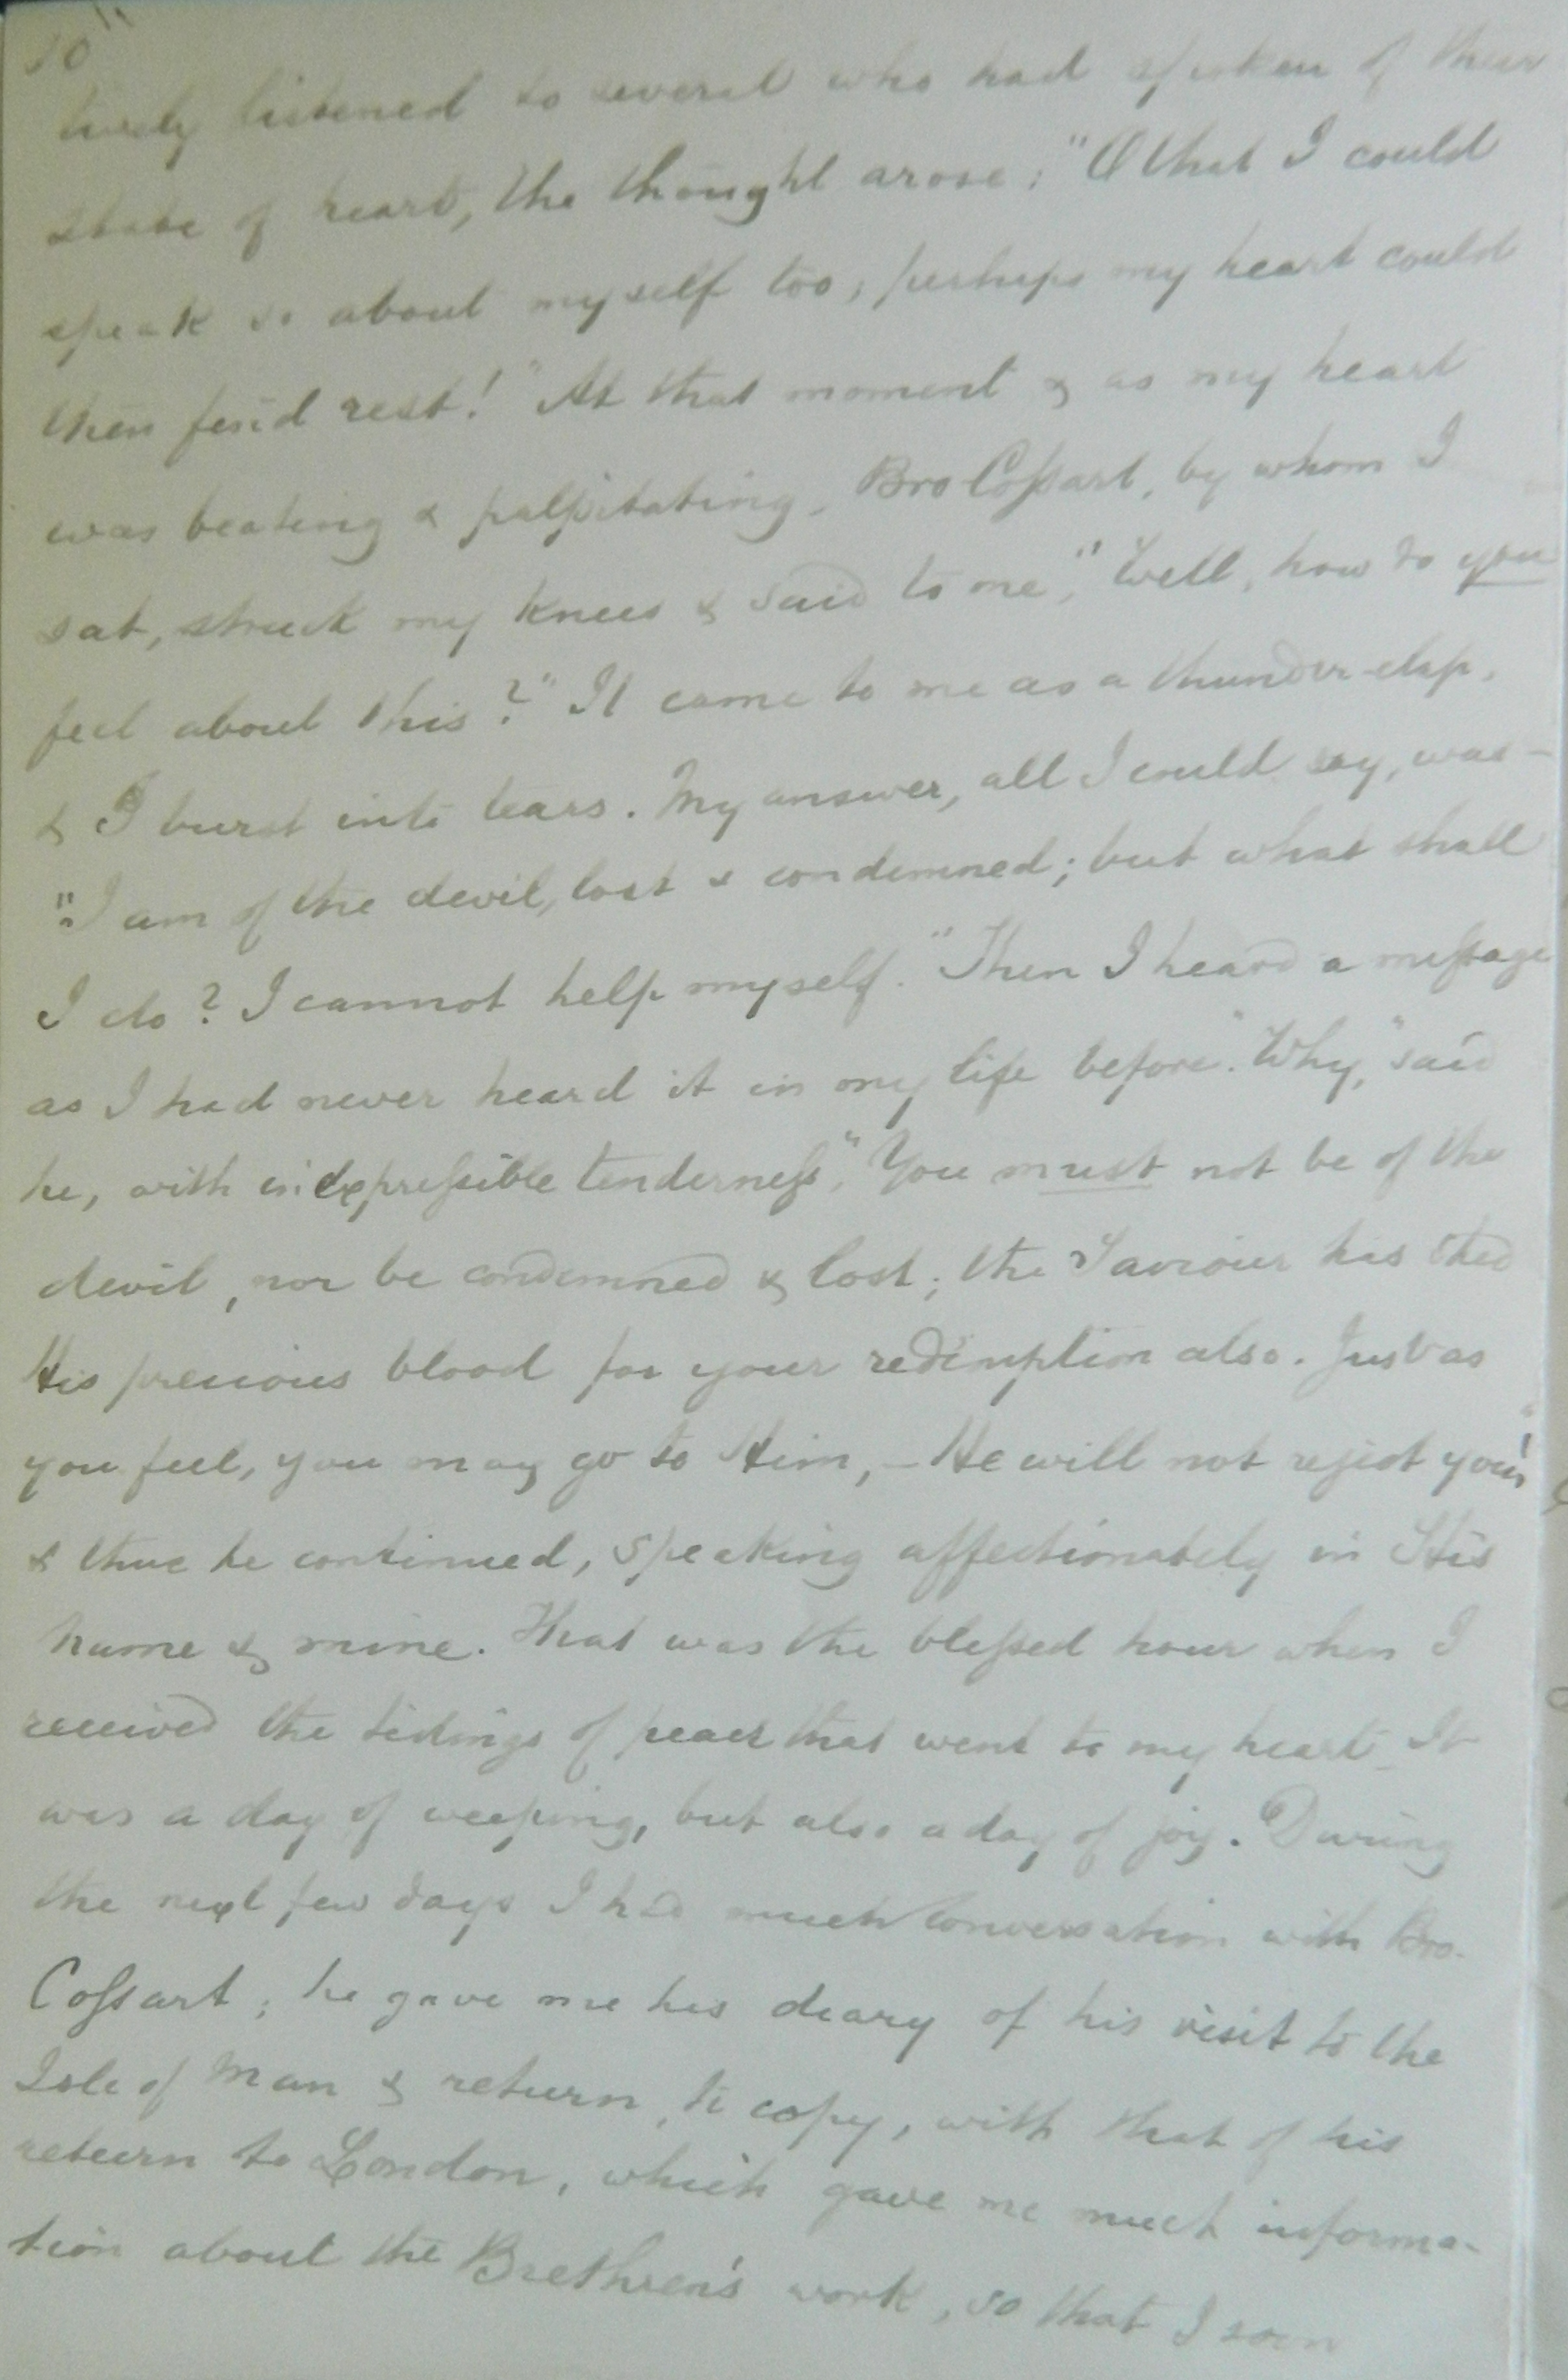 10"
tively listened to several who had spoken of their
state of heart, the thought arose; "O that I could
speak so about myself too; perhaps my heart could
then find rest!" At that moment & as my heart
was beating & palpitating, Bro Coſsart, by whom I
sat, struck my knees & said to me, "Well, how do you
feel about this?" It came to me as a thunder-clap,
& I burst into tears. My answer, all I could say, was –
"I am of the devil, lost & condemned; but what shall
I do? I cannot help myself." Then I heard a meſsage
as I had never heard it in my life before. "Why," said
he, with inexpreſsible tenderneſs, "You must not be of the
devil, nor be condemned & lost; the Saviour has shed
His precious blood for your redemption also. Just as
you feel, you may go to Him, – He will not reject you!"
& thus he continued, speaking affectionately in His
name & mine. That was the bleſsed hour when I
received the tidings of peace that went to my heart. It
was a day of weeping, but also a day of joy. During
the next few days I had much conversation with Bro.
Coſsart; he gave me his diary of his visit to the
Isle of Man & return, to copy, with that of his
return to London, which gave me much informa-
tion about the Brethren's work, so that I soon